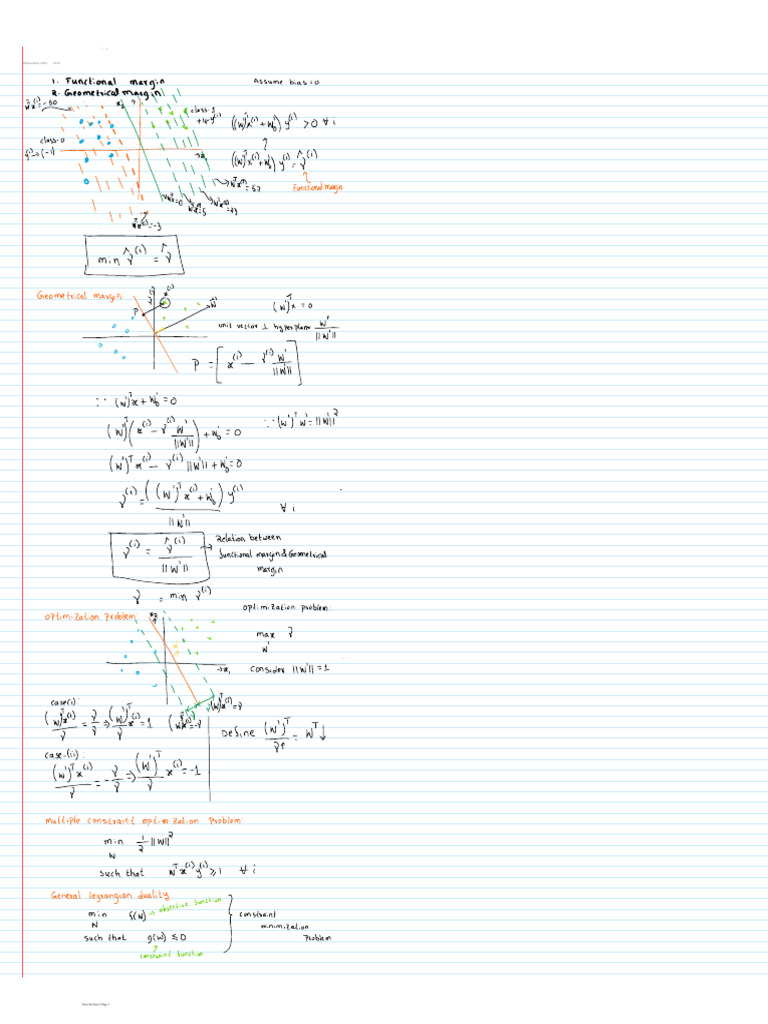 1. Functional margin
Assume bias=0
2. Geometrical margin
class-1
class-0
y⁽ⁱ⁾→(-1)
((W')ᵀx⁽ⁱ⁾+W₀') y⁽ⁱ⁾ >0 ∀ i
((W')ᵀx⁽ⁱ⁾+W₀') y⁽ⁱ⁾ = γ̂⁽ⁱ⁾
Functional margin
min γ̂⁽ⁱ⁾ = γ̂
Geometrical margin
(W')ᵀx = 0
unit vector ⊥ hyperplane W'/||W'||
P = [x⁽ⁱ⁾ − γ⁽ⁱ⁾ W'/||W'||]
∵ (W')ᵀx + W₀' = 0
(W')ᵀ(x⁽ⁱ⁾ − γ⁽ⁱ⁾ W'/||W'||) + W₀' = 0 ∵ (W')ᵀW' = ||W'||²
(W')ᵀx⁽ⁱ⁾ − γ⁽ⁱ⁾||W'|| + W₀' = 0
γ⁽ⁱ⁾ = ((W')ᵀx⁽ⁱ⁾ + W₀') y⁽ⁱ⁾ / ||W'|| ∀ i
γ⁽ⁱ⁾ = γ̂⁽ⁱ⁾ / ||W'|| → Relation between
functional margin & Geometrical
margin
γ = min γ⁽ⁱ⁾
optimization problem:
optimization problem:
max γ
W'
consider ||W'||=1
case(i):
(W')ᵀx⁽ⁱ⁾/γ = γ/γ ⇒ (W')ᵀ/γ x⁽ⁱ⁾ = 1
Define (W')ᵀ/γ↑ = Wᵀ↓
case-(ii):
(W')ᵀx⁽ⁱ⁾/γ = −γ/γ ⇒ (W')ᵀ/γ x⁽ⁱ⁾ = −1
Multiple constraint optimization problem:
min 1/2 ||W||²
W
such that Wᵀx⁽ⁱ⁾y⁽ⁱ⁾ ≥ 1 ∀ i
General legrangian duality
min f(W) → objective function
W
such that g(W) ≤ 0
constraint function
constraint
minimization
problem